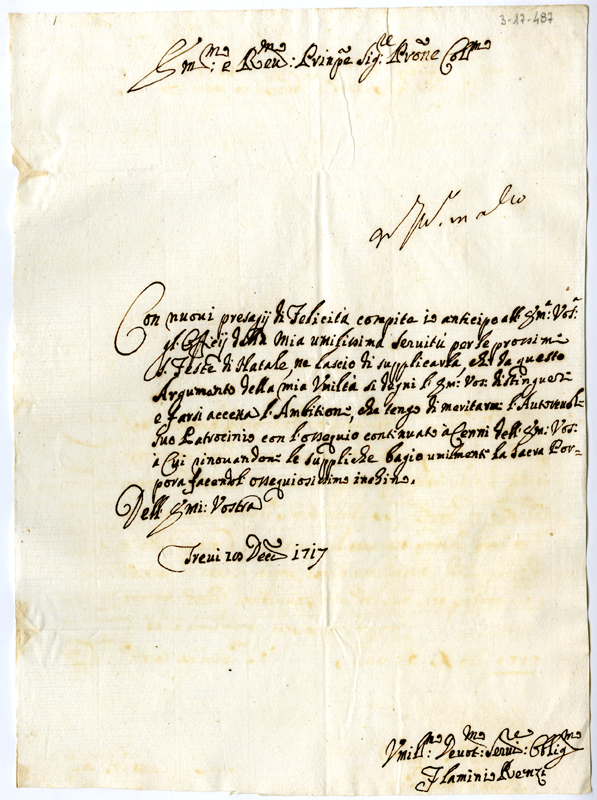 3-17-487
Em:mo e Reu:mo Prinpe Sig:re Prone Coll:mo
Con nuoui presagij di Felicità compite io anticipo all' Em:a Vos:a
gl' Officij della Mia umilissima Seruitù per le prossime
S. Feste di Natale, ne lascio di supplicarla, che da questo
Argumento della mia Vmiltà si degni l' Em: Vos: distinguere
e farsi accetta l'Ambitione, che tengo di meritarmi l'Autoreuole
Suo Patrocinio con l'ossequio continuato à Cenni dell' Em: Vos:
à Cui rinouandone le suppliche bagio umilmente la Sacra Por-
pora facendole ossequiosissimo inchino.
Dell' Emi: Vostra
Treui 20 Dece 1717
Vmill:mo Deuot:mo Serui:re Oblig:mo
Flaminio Renzi